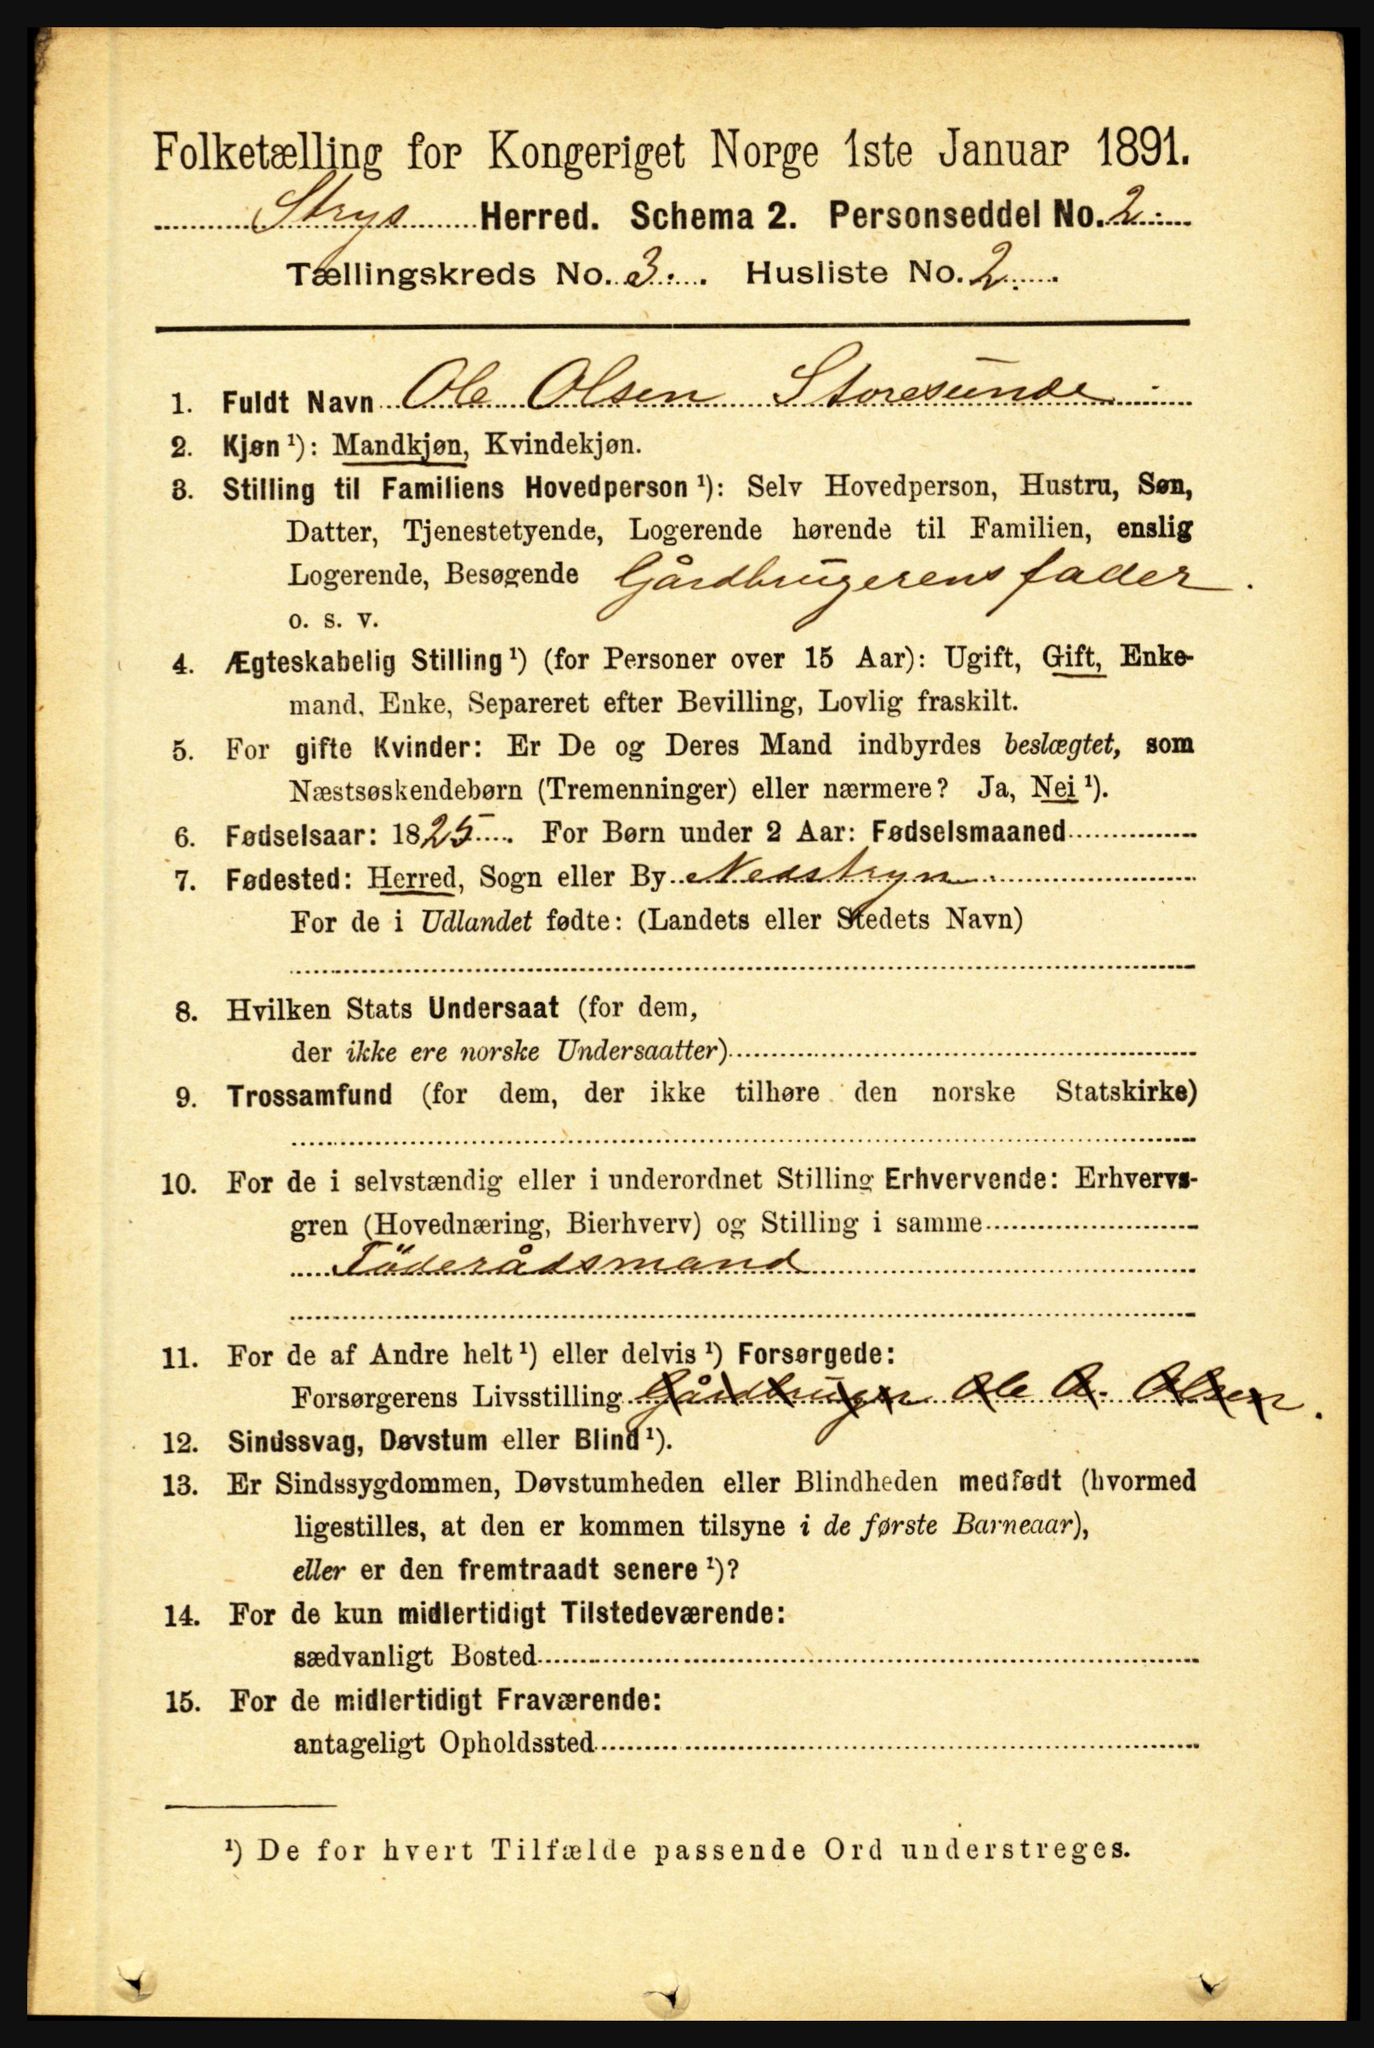 Folketælling for Kongeriget Norge 1ste Januar 1891.
Stryns Herred. Schema 2. Personseddel No. 2.
Tællingskreds No. 3. Husliste No. 2.
1. Fuldt Navn Ole Olsen Storesunde
2. Kjøn ¹): Mandkjøn, Kvindekjøn.
3. Stilling til Familiens Hovedperson ¹): Selv Hovedperson, Hustru, Søn,
Datter, Tjenestetyende, Logerende hørende til Familien, enslig
Logerende, Besøgende Gårdbrugerens fader.
o. s. v.
4. Ægteskabelig Stilling ¹) (for Personer over 15 Aar): Ugift, Gift, Enke-
mand, Enke, Separeret efter Bevilling, Lovlig fraskilt.
5. For gifte Kvinder: Er De og Deres Mand indbyrdes beslægtet, som
Næstsøskendebørn (Tremenninger) eller nærmere? Ja, Nei ¹).
6. Fødselsaar: 1825. For Børn under 2 Aar: Fødselsmaaned
7. Fødested: Herred, Sogn eller By Nedstryn
For de i Udlandet fødte: (Landets eller Stedets Navn)
8. Hvilken Stats Undersaat (for dem,
der ikke ere norske Undersaatter)
9. Trossamfund (for dem, der ikke tilhøre den norske Statskirke)
10. For de i selvstændig eller i underordnet Stilling Erhvervende: Erhvervs-
gren (Hovednæring, Bierhverv) og Stilling i samme
Föderådsmand
11. For de af Andre helt ¹) eller delvis ¹) Forsørgede:
Forsørgerens Livsstilling Gårdbruger Ole O. Olsen.
12. Sindssvag, Døvstum eller Blind ¹).
13. Er Sindssygdommen, Døvstumheden eller Blindheden medfødt (hvormed
ligestilles, at den er kommen tilsyne i de første Barneaar),
eller er den fremtraadt senere ¹)?
14. For de kun midlertidigt Tilstedeværende:
sædvanligt Bosted
15. For de midlertidigt Fraværende:
antageligt Opholdssted
¹) De for hvert Tilfælde passende Ord understreges.